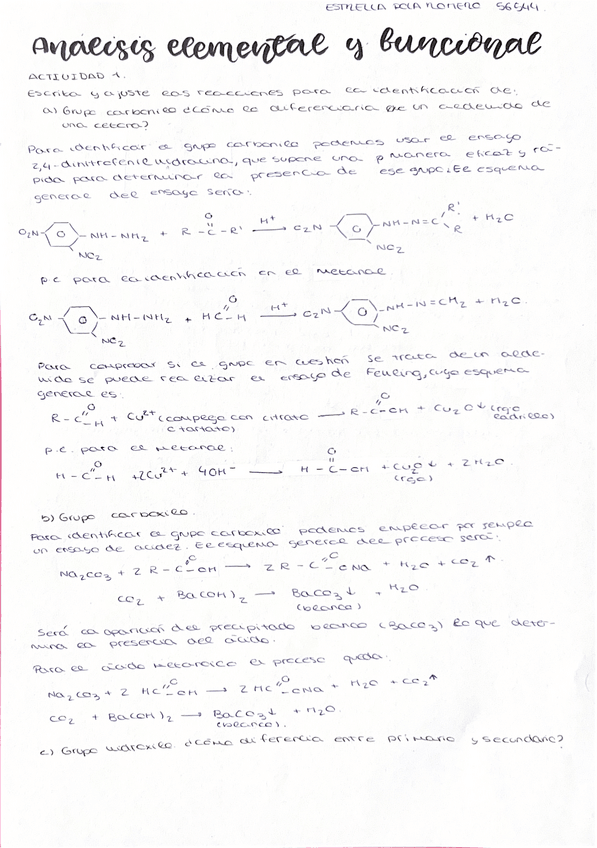 ESTRELLA ROMERO 56544.
Análisis elemental y funcional
ACTIVIDAD 1.
Escriba y ajuste las reacciones para la identificación de:
a) Grupo carbonilo ¿Cómo lo diferenciaria de un aldehido de
una cetona?
Para identificar el grupo carbonilo podemos usar el ensayo
2,4-dinitrofenilhydracina, que supone una manera eficaz y rá-
pida para determinar la presencia de ese grupo. El esquema
general del ensayo sería:
O2N- -NH-NH2 + R-C-R' H+ → O2N- -NH-N=C R' R + H2O
NO2 O NO2
p.e para la identificación en el metanal
O2N- -NH-NH2 + HC-H H+ → O2N- -NH-N=CH2 + H2O.
NO2 O NO2
Para comprobar si el grupo en cuestión se trata de un alde-
hido se puede realizar el ensayo de Fehling, cuyo esquema
general es:
R-C-H + Cu2+ (complejo con citrato → R-C-OH + Cu2O↓ (rojo
o tartato) ladrillo)
p.e. para el metanal:
H-C-H + 2Cu2+ + 4OH- → H-C-OH + Cu2O↓ + 2H2O.
(rojo)
b) Grupo carboxilo.
Para identificar el grupo carboxilo podemos emplear por ejemplo
un ensayo de acidez. El esquema general del proceso será:
Na2CO3 + 2 R-C-OH → 2 R-C-ONa + H2O + CO2↑.
CO2 + Ba(OH)2 → BaCO3↓ + H2O
(blanco)
Será la aparición del precipitado blanco (BaCO3) lo que deter-
mina la presencia del ácido.
Para el ácido metanoico el proceso queda:
Na2CO3 + 2 HC-OH → 2 HC-ONa + H2O + CO2↑
CO2 + Ba(OH)2 → BaCO3↓ + H2O.
(blanco).
c) Grupo hidroxilo ¿Cómo diferencia entre primario y secundario?